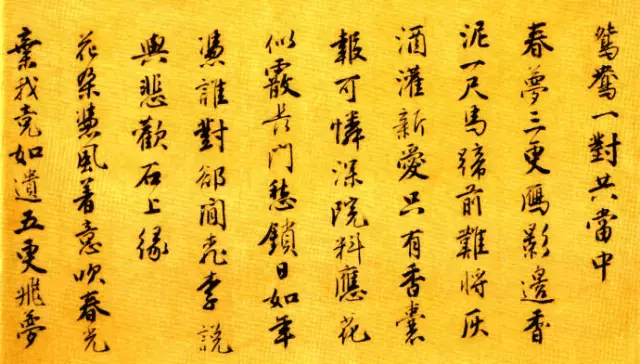 鴛鴦一對共當中
春夢三更鴈影邊香
泥一尺馬蹄前難將灰
酒灌新愛只有香囊
報可憐深院料應花
似霰長門愁鎖日如年
憑誰對卻閒桃李說
與悲歡石上緣
花朶慿風着意吹春光
棄我竟如遺五更飛夢